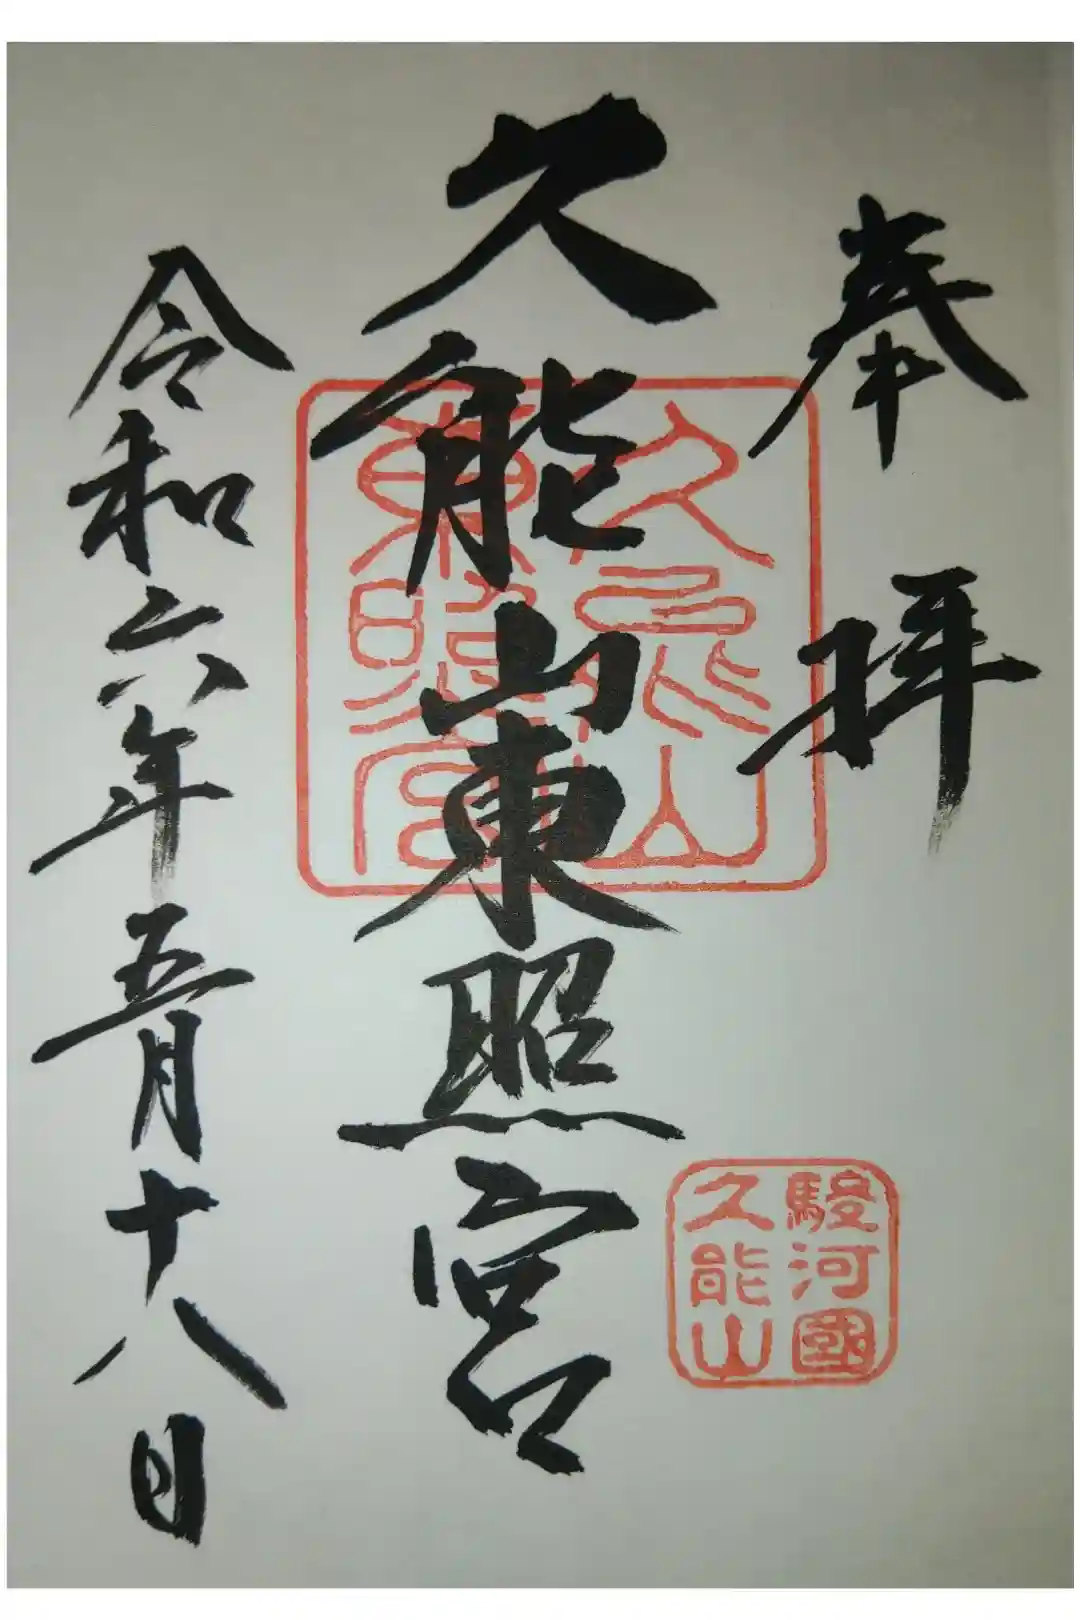 奉拝
久能山東照宮
久能山
東照宮
駿河國
久能山
令和六年五月十八日